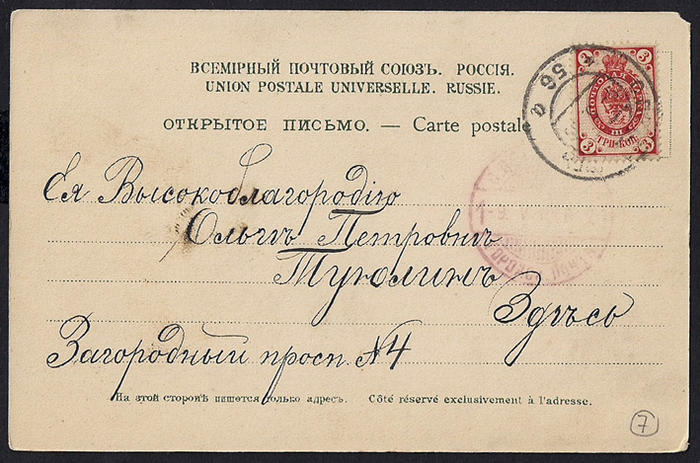 ВСЕМІРНЫЙ ПОЧТОВЫЙ СОЮЗЪ. РОССІЯ.
UNION POSTALE UNIVERSELLE. RUSSIE.
ОТКРЫТОЕ ПИСЬМО. — Carte postale
3 3
ПОЧТОВАЯ МАРКА
ТРИ КОП.
3 3
56
Ея Высокоблагородію
Ольгѣ Петровнѣ
Здѣсь
Загородный просп. №4
На этой сторонѣ пишется только адресъ. Côté réservé exclusivement à l'adresse.
7